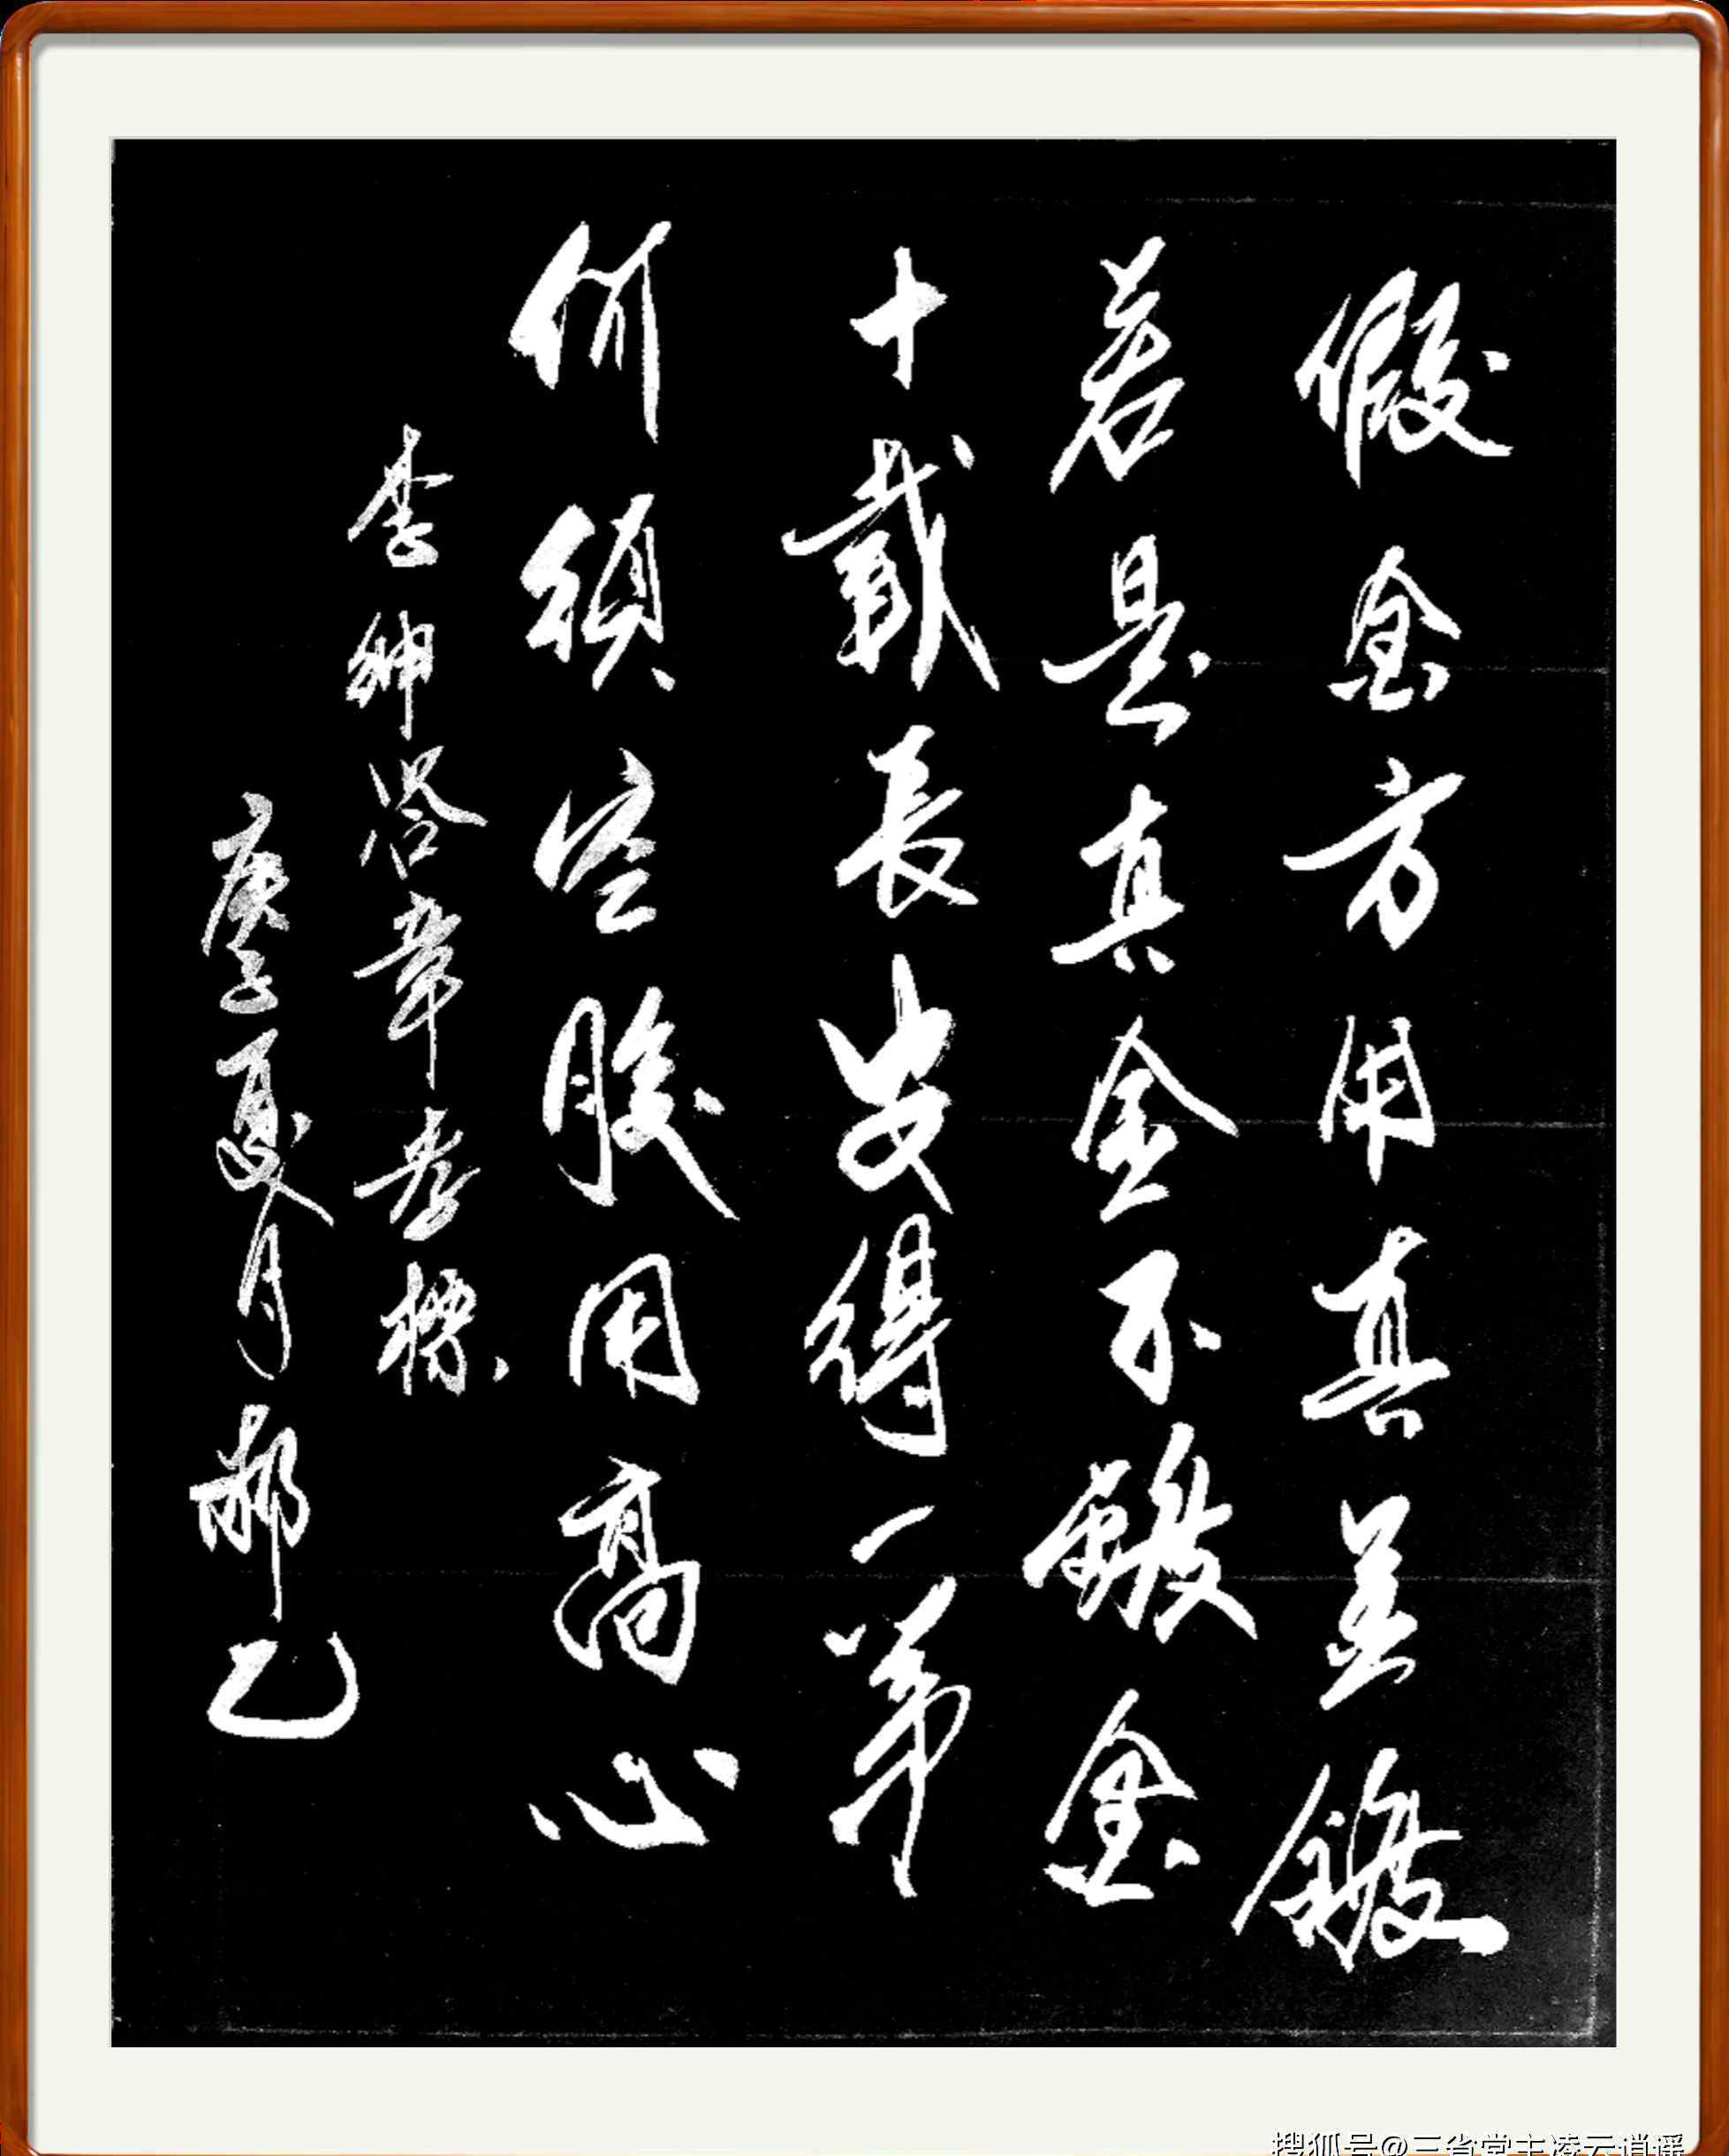 假金方用真金鍍
若是真金不鍍金
十載長安得一第
何須空腹用高心
李紳答章孝標
庚子夏月郝乙
搜狐号@三省堂主凌云逍遥